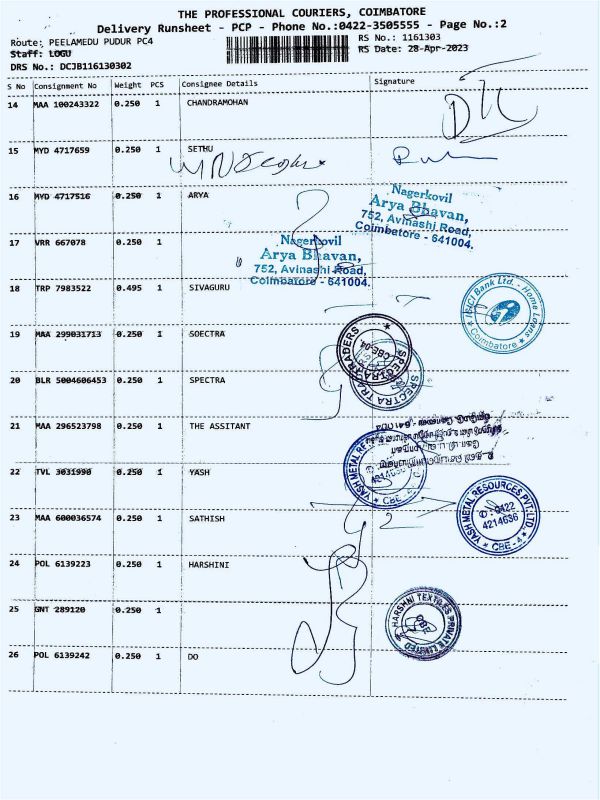 THE PROFESSIONAL COURIERS, COIMBATORE
Delivery Runsheet - PCP - Phone No.:0422-3505555 - Page No.:2
Route: PEELAMEDU PUDUR PC4 RS No.: 1161303
Staff: LOGU RS Date: 28-Apr-2023
DRS No.: DCJB116130302
S No Consignment No Weight PCS Consignee Details Signature
14 MAA 100243322 0.250 1 CHANDRAMOHAN
15 MYD 4717659 0.250 1 SETHU
16 MYD 4717516 0.250 1 ARYA
Nagerkovil
Arya Bhavan,
752, Avinashi Road,
Coimbatore - 641004.
17 VRR 667078 0.250 1
Nagerkovil
Arya Bhavan,
752, Avinashi Road,
Coimbatore - 641004.
18 TRP 7983522 0.495 1 SIVAGURU
ICICI Bank Ltd. - Home Loans
Coimbatore
19 MAA 299031713 0.250 1 SOECTRA
SPECTRA TRADERS
CBE-04.
20 BLR 5004606453 0.250 1 SPECTRA
SPECTRA TRADERS
21 MAA 296523798 0.250 1 THE ASSITANT
22 TVL 3031990 0.250 1 YASH
YASH METAL RESOURCES
CBE
23 MAA 600036574 0.250 1 SATHISH
YASH METAL RESOURCES PVT.LTD.
0422
4214636
CBE - 4
24 POL 6139223 0.250 1 HARSHINI
25 GNT 289120 0.250 1
HARSHNI TEXTILES PRIVATE LIMITED
CBE
26 POL 6139242 0.250 1 DO